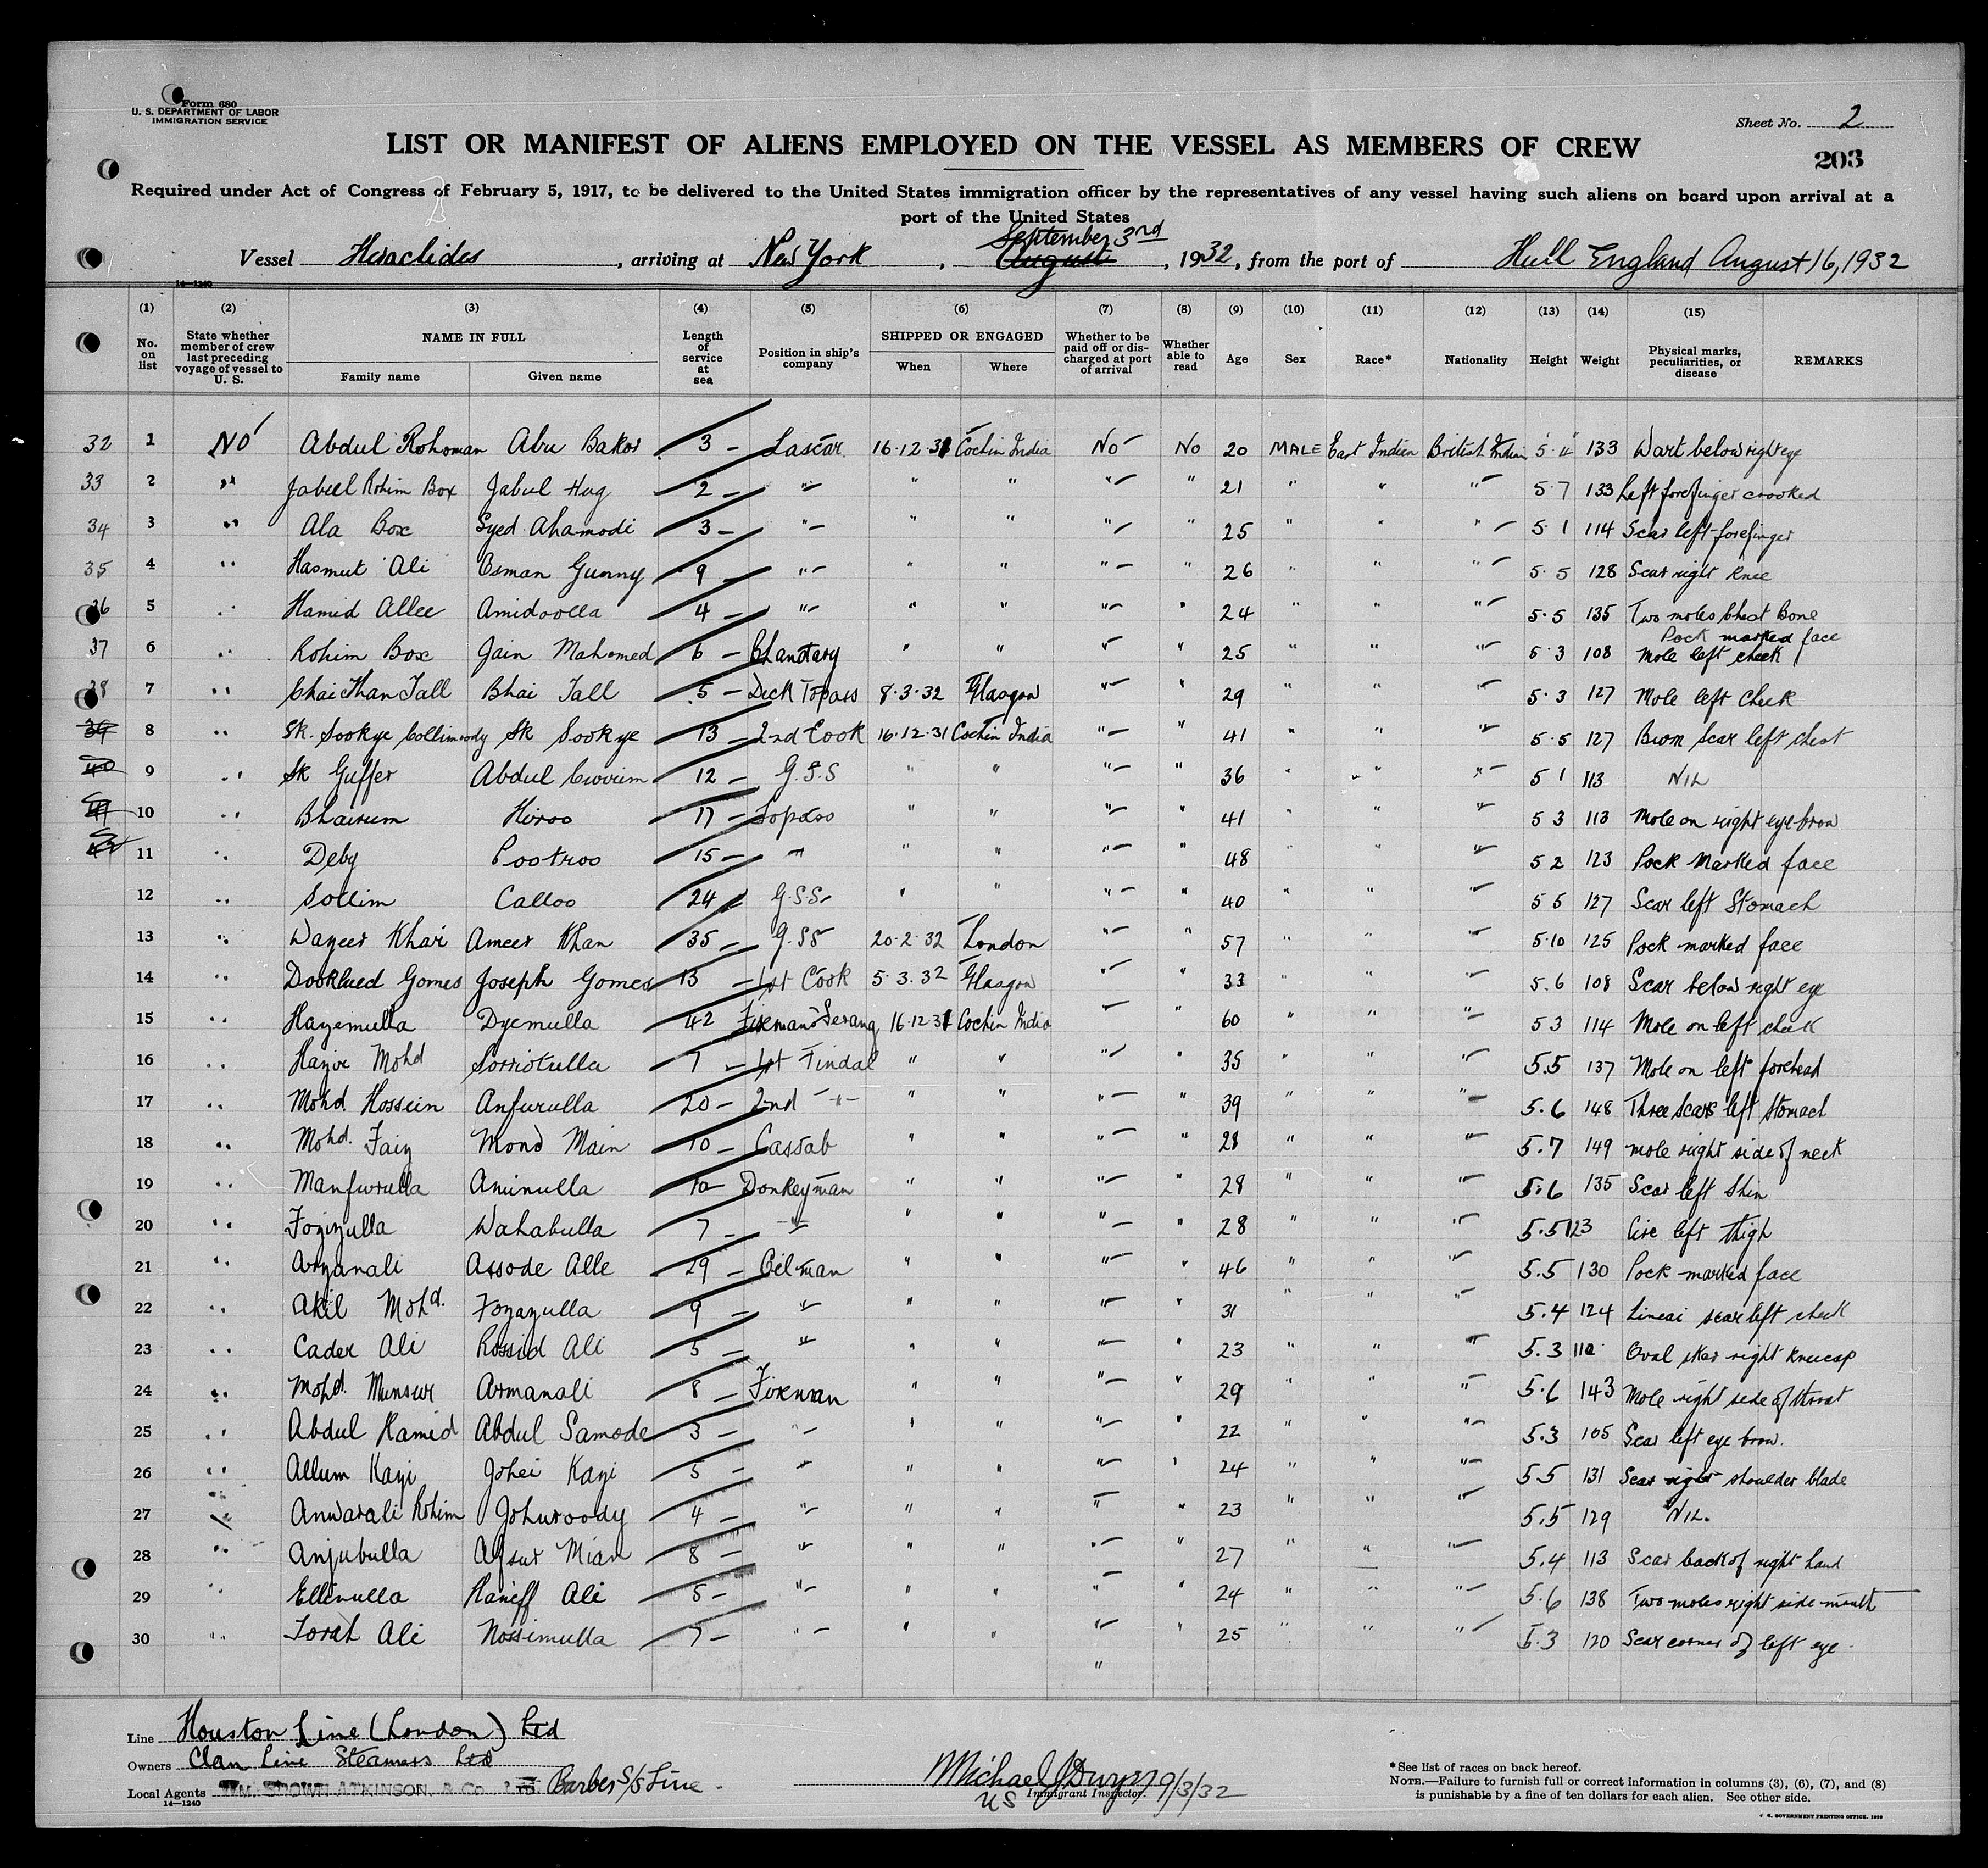 Form 680
U. S. DEPARTMENT OF LABOR
IMMIGRATION SERVICE
Sheet No. 2
LIST OR MANIFEST OF ALIENS EMPLOYED ON THE VESSEL AS MEMBERS OF CREW
203
Required under Act of Congress of February 5, 1917, to be delivered to the United States immigration officer by the representatives of any vessel having such aliens on board upon arrival at a
port of the United States
September 3rd
Vessel Heraclides, arriving at New York, August, 1932, from the port of Hull England August 16, 1932
14—1240
(1) (2) (3) (4) (5) (6) (7) (8) (9) (10) (11) (12) (13) (14) (15)
No. on list State whether member of crew last preceding voyage of vessel to U. S. NAME IN FULL Family name Given name Length of service at sea Position in ship's company SHIPPED OR ENGAGED When Where Whether to be paid off or discharged at port of arrival Whether able to read Age Sex Race* Nationality Height Weight Physical marks, peculiarities, or disease REMARKS
32 1 No Abdul Rohoman Abu Baker 3 – Lascar 16.12.31 Cochin India No No 20 MALE East Indian British Indian 5 133 Wart below right eye
33 2 " Jabed Rohim Box Jabul Hug 2 – " " " " " 21 " " " 5 7 133 Left forefinger crooked
34 3 " Ala Box Syed Ahamodi 3 – " " " " " 25 " " " 5 1 114 Scar left forefinger
35 4 " Hasmut Ali Osman Gunny 9 – " " " " " 26 " " " 5.5 128 Scar right knee
36 5 " Hamid Allee Amidoolla 4 – " " " " " 24 " " " 5.5 135 Two moles Chest Bone
Pock marked face
37 6 " Rohim Box Jain Mahomed 6 – Bhandary " " " " 25 " " " 5 3 108 Mole left cheek
38 7 " Bhai Jall 5 – Deck Topass 8.3.32 Glasgow " " 29 " " " 5.3 127 Mole left Cheek
39 8 " Sk. Sookye Sk Sookye 13 – 2nd Cook 16.12.31 Cochin India " " 41 " " " 5.5 127 Scar left chest
40 9 " Sk Guffer Abdul 12 – G.S.S " " " " 36 " " " 5 1 113 NIL
41 10 " Bhairum Hiroo 17 – Topass " " " " 41 " " " 5 3 113 Mole on right eye brow
11 " Deby Pootroo 15 – " " " " " 48 " " " 5 2 123 Pock Marked face
12 " Sollim Calloo 24 G.S.S. " " " " 40 " " " 5 5 127 Scar left Stomach
13 " Wazeer Khan Ameer Khan 35 – G.SS 20.2.32 London " " 57 " " " 5.10 125 Pock marked face
14 " Gomes Joseph Gomes 13 – 1st Cook 5.3.32 Glasgow " " 33 " " " 5.6 108 Scar below right eye
15 " Hazemulla Dyemulla 42 Firemans Serang 16.12.31 Cochin India " " 60 " " " 5 3 114 Mole on left cheek
16 " Mohd Sorriotulla 7 – 1st Tindal " " " " 35 " " " 5.5 137 Mole on left forehead
17 " Mohd. Hossein Anfurulla 20 – 2nd " " " " " 39 " " " 5.6 148 Three Scars left Stomach
18 " Mohd. Faiz Mond Main 10 – Cassab " " " " 28 " " " 5.7 149 mole right side of neck
19 " Manfurulla Aminulla 10 Donkeyman " " " " 28 " " " 5.6 135 Scar left Shin
20 " Fozizulla Wahabulla 7 – " " " " " 28 " " " 5.5 123 left thigh
21 " Arzanali Assode Alle 29 – Oilman " " " " 46 " " " 5.5 130 Pock marked face
22 " Akil Mohd. Fozazulla 9 – " " " " " 31 " " " 5.4 124 Linear scar left cheek
23 " Cader Ali Rossid Ali 5 – " " " " " 23 " " " 5.3 Oval right kneecap
24 " Mohd. Munsur Armanali 8 – Fireman " " " " 29 " " " 5.6 143 Mole right side of throat
25 " Abdul Hamid Abdul Samode 3 – " " " " " 22 " " " 5.3 105 Scar left eye brow.
26 " Allum Kazi Johei Kazi 5 – " " " " " 24 " " " 5 5 131 Scar right shoulder blade
27 " Anwarali Rohim Johuroody 4 – " " " " " 23 " " " 5.5 129 NIL.
28 " Anjubulla Afsur Mian 8 – " " " " " 27 " " " 5.4 113 Scar back of right hand
29 " Ellimulla Haneff Ali 5 – " " " " " 24 " " " 5.6 138 Two moles right side mouth
30 " Torah Ali Nossimulla 7 – " " " " " 25 " " " 5.3 120 Scar corner of left eye.
"
Line Houston Line (London) Ltd
Owners Clan Line Steamers Ltd
Local Agents WM. BROWN ATKINSON, & Co. LTD. Barber S/S Line
14—1240
Michael J Dwyer 9/3/32
US Immigrant Inspector.
*See list of races on back hereof.
NOTE.—Failure to furnish full or correct information in columns (3), (6), (7), and (8)
is punishable by a fine of ten dollars for each alien. See other side.
U. S. GOVERNMENT PRINTING OFFICE